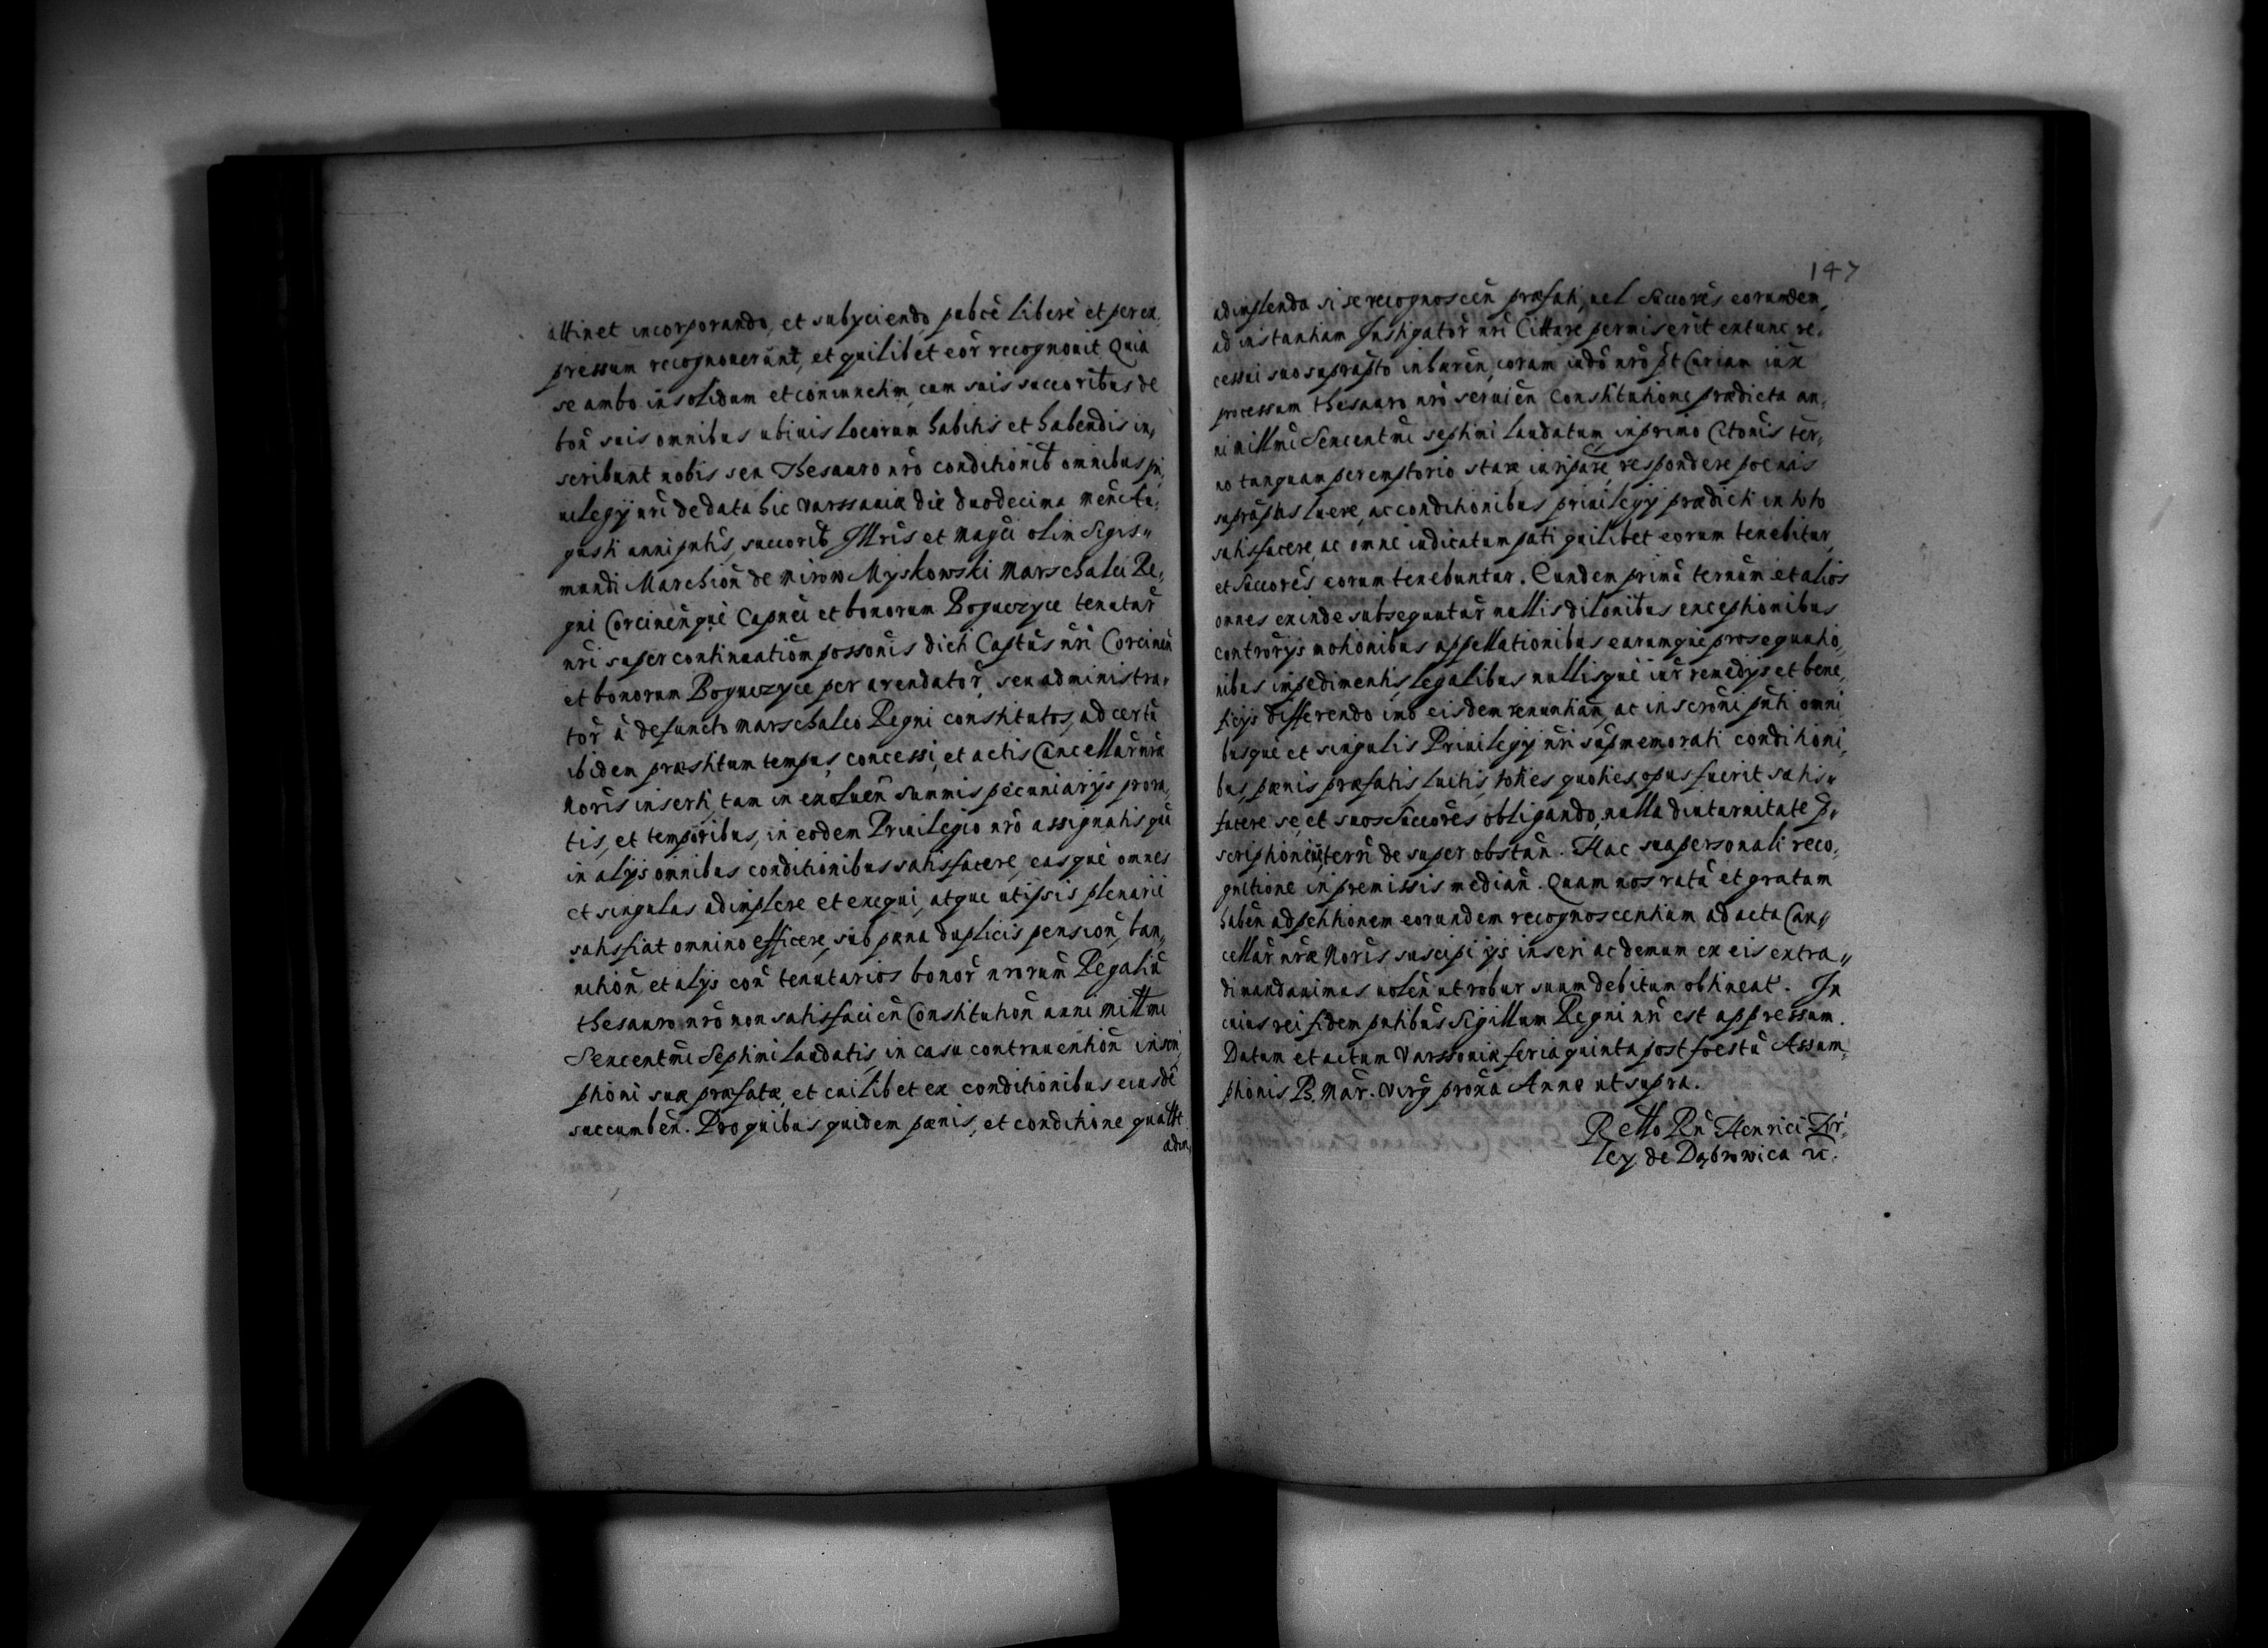 attinet incorporando, et subyciendo, pubcè liberè et per ex,
pressum recognouerunt, et quilibet eor̃ recognouit, Quia
se ambo in solidum et coniunctim, cum suis succoribus de
bon̄ suis omnibus ubiuis locorum habitis et habendis in,
scribunt nobis seu Thesauro nrõ conditionib̃ omnibus pri,
uilegÿ nr̃i de data hic varssauiæ die duodecima men̄c Au,
gusti anni pn̄tis, succorib̃ Illr̃is et Magc̃i olim Sigis,,
mundi Marchion̄ de Mirow Myskowski Marschalci Re,
gni Corcinen̄què Capnei et bonorum Boguczyce tenutar̃
nr̃i super continuatiom possonis dicti Captūs nr̃i Corcinen̄
et bonorum Boguczyce per arendator̃, seu administra,
tor̃ à defuncto Marschalco Regni constitutos, ad certū
ibidem præstitum tempus, concessi, et actis Cancellar̃ nr̃æ
Noris inserti, tam in exoluen̄ summis pecuniarÿs prora,
tis, et temporibus, in eodem Priuilegio nrõ assignatis quā
in alÿs omnibus conditionibus satisfacere, easquè omnes
et singulas adimplere et exequi, atque ut ipsis plenariè
satisfiat omnino efficere, sub pæna duplicis pension̄, ban,
nition̄ et alÿs con̄ tenutarios bonor̃ nrorum̄ Regaliū
thesauro nrõ non satisfacien̄ Constitution̄ anni Millmi
Sencentmi Septimi laudatis, in casu contrauention̄ inscri,
ptioni suæ præfatæ, et cuilibet ex conditionibus eiusdē
succumben̄. Pro quibus quidem pænis, et conditione qualt
adim,
147
adimplenda si se recognoscen̄ præfati, uel Succorēs eorundem,
ad instantiam Instigator̃ nr̃i Cittare permiserit extunc re,
cessui suo suprapto inhæren̄, coram iudō nrõ pt Curiam iux
processum thesauro nrõ seruien̄ Constitutione prædicta an,
ni millmi Sencentmi septimi laudatum, in primo Citonis ter,
no tanquam peremptorio stare, iuripāre, respondere poenas
supraptis luere, ac conditionibus priuilegÿ prædicti in toto
satisfacere, ac omne iudicatum pati quilibet eorum tenebitur,
et Succorēs eorum tenebuntur. Eundem primū ternum et alios
omnes exinde subsequutur̃ nullis dilonibus exceptionibus
controrÿs motionibus appellationibus earumquè prosequutio,
nibus impedimentis, legalibus nullisquè iur̃ remedÿs et bene,
ficÿs differendo imò eisdem renuntian̄, ac inscroni pnti omni
busque et singulis Priuilegÿ nr̃i supmemorati conditioni,
bus, pænis præfatis luitis, toties quoties opus fuerit satis,
facere se, et suos Succorēs obligando, nulla diuturnitate p,
scriptionis, terri de super obstan̄. Hac sua personali reco,
gnitione in premissis median̄. Quam nos ratā et gratam
haben̄ ad petitionem eorundem recognoscentium ad acta Can,,
cellar̃ nr̃æ Noris suscipi ÿs inseri ac demum ex eis extra,,
di mandauimus uolen̄ ut robur suum debitum obtineat. In
cuius rei fidem pn̄tibus Sigillum Regni nr̃i est appressum.
Datum et actum Varssouiæ feria quinta post foestū Assum,
ptionis B. Mar. Virg proxa Anno ut supra.
Retto Rn̄ Henrici Fir,
ley de Dąbrowica ꝛc.